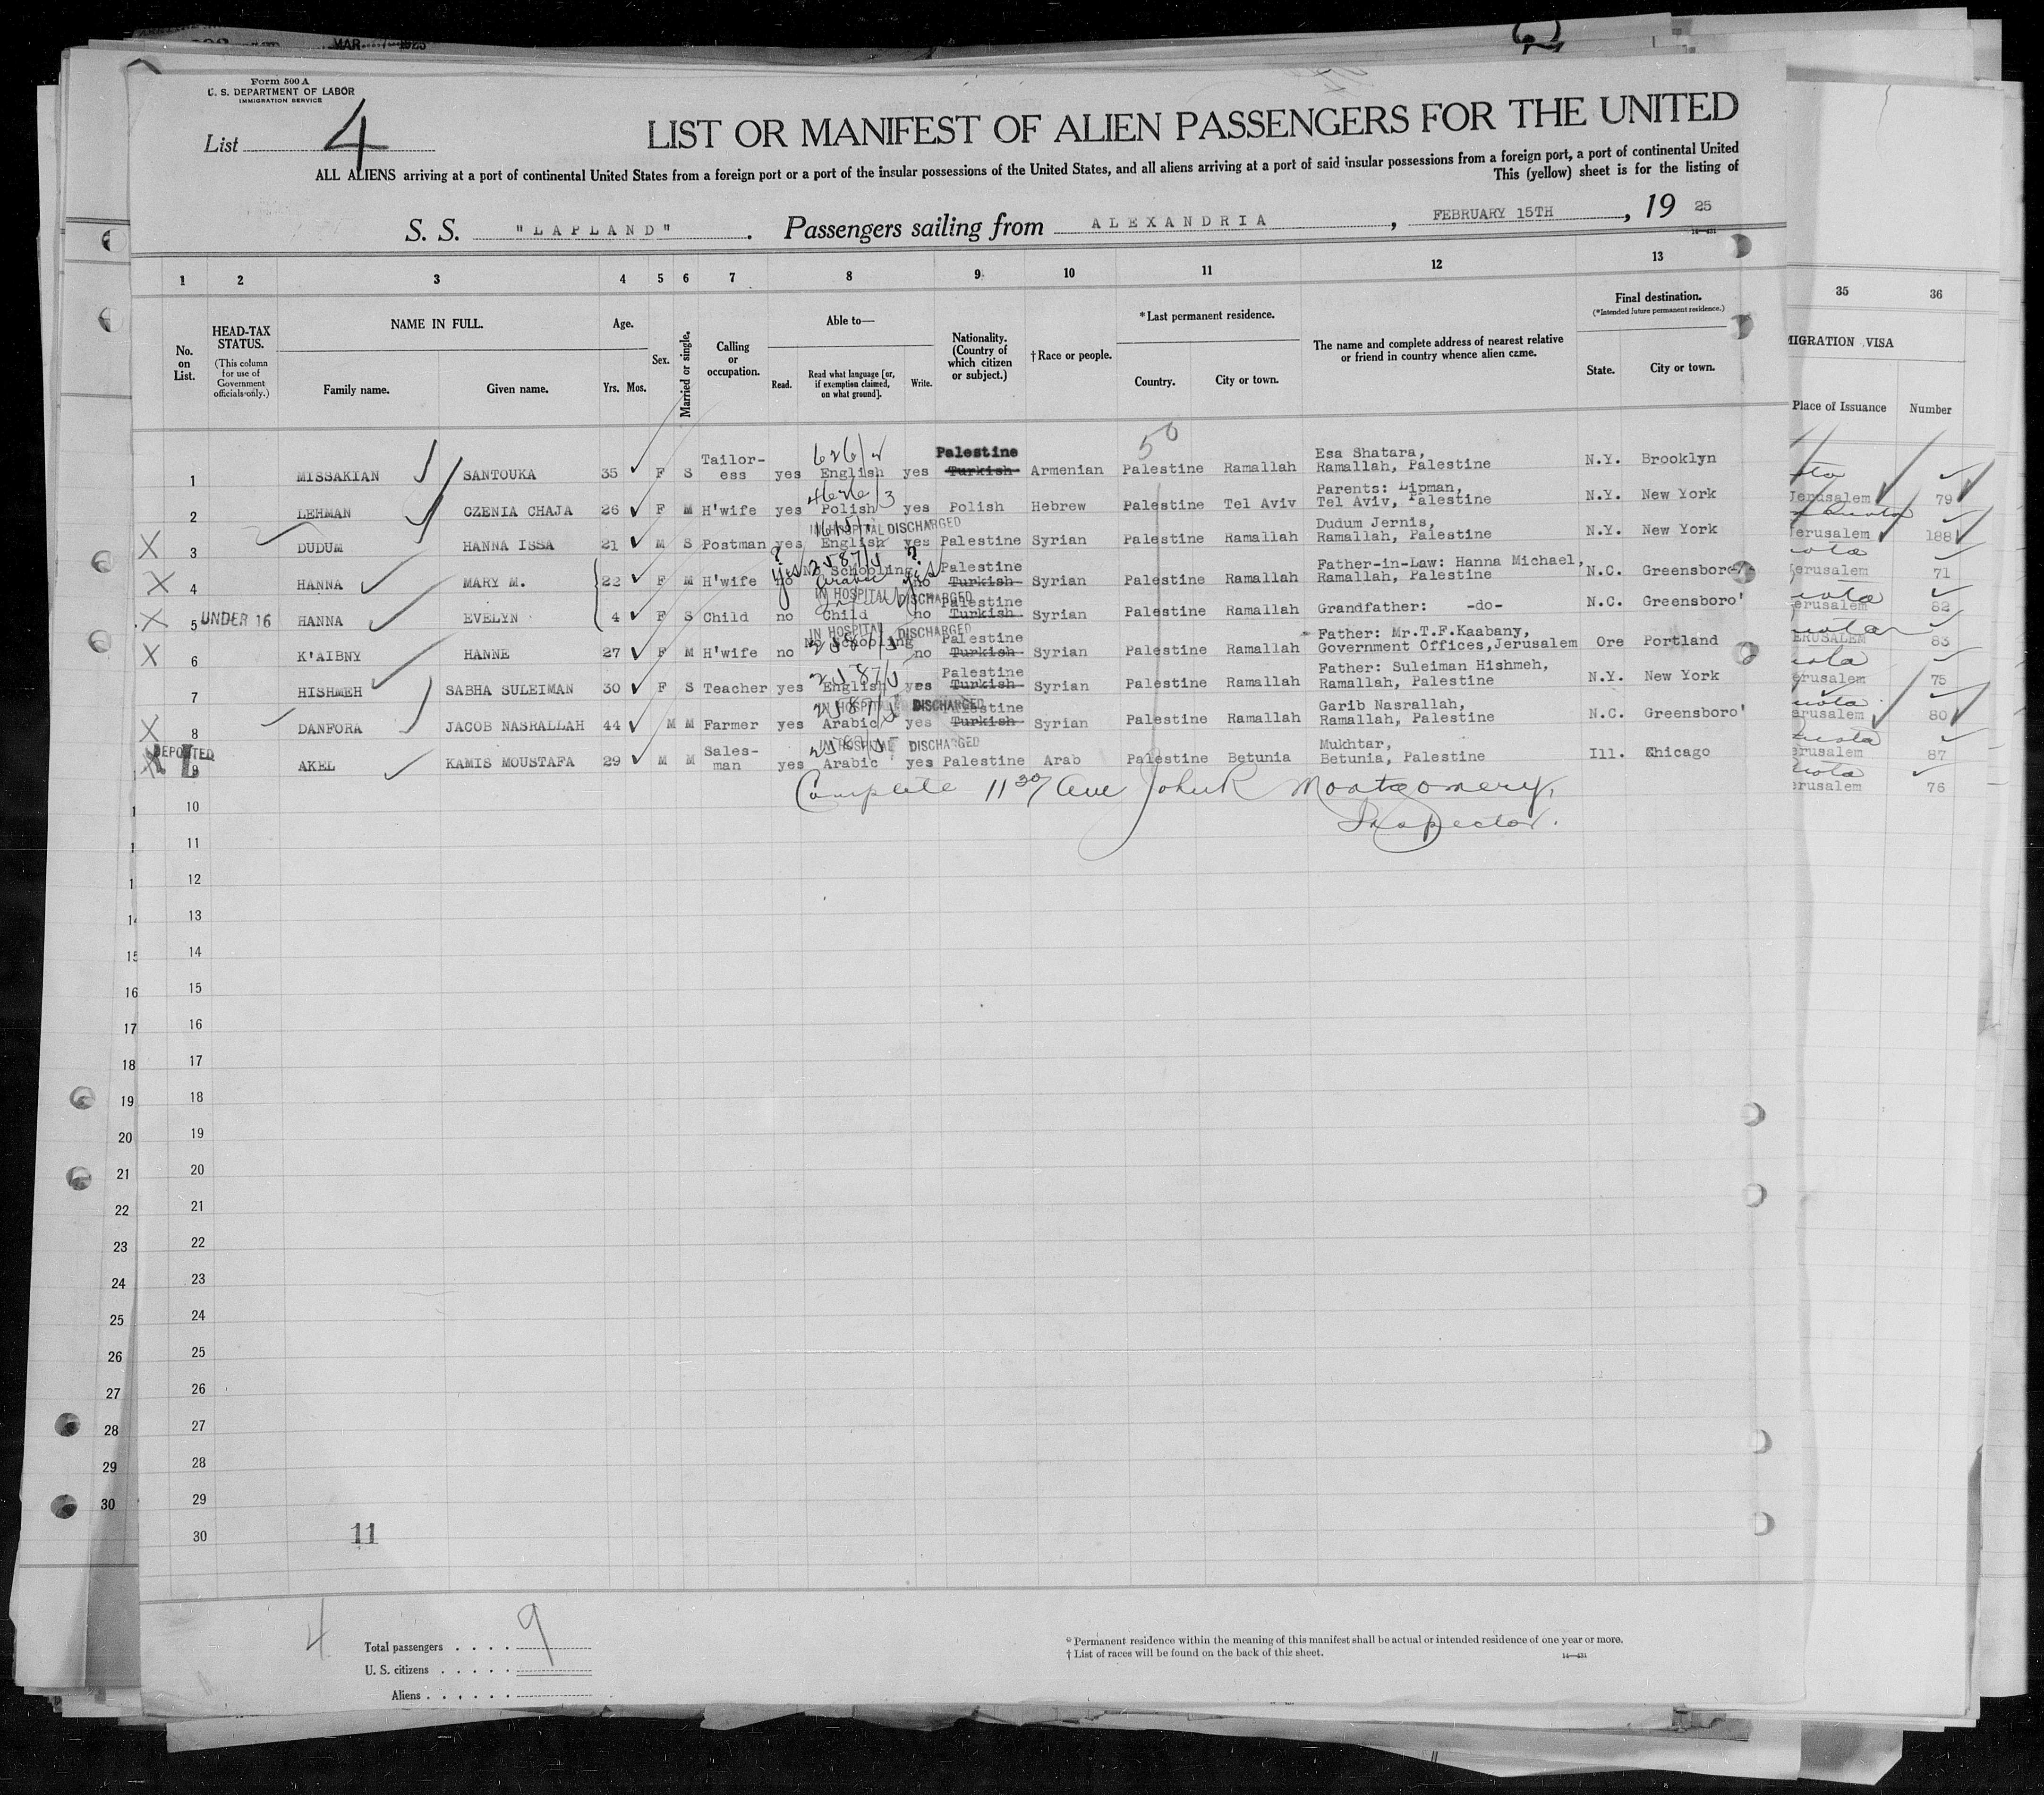 MAR 1925
Form 500 A
U. S. DEPARTMENT OF LABOR
IMMIGRATION SERVICE
List 4
LIST OR MANIFEST OF ALIEN PASSENGERS FOR THE UNITED
ALL ALIENS arriving at a port of continental United States from a foreign port or a port of the insular possessions of the United States, and all aliens arriving at a port of said insular possessions from a foreign port, a port of continental United
This (yellow) sheet is for the listing of
S. S. "LAPLAND". Passengers sailing from ALEXANDRIA, FEBRUARY 15TH, 19 25
14—431
1 2 3 4 5 6 7 8 9 10 11 12 13 35 36
No. on List.
HEAD-TAX STATUS.
(This column for use of Government officials only.)
NAME IN FULL.
Family name. Given name.
Age.
Yrs. Mos.
Sex.
Married or single.
Calling or occupation.
Able to—
Read. Read what language [or, if exemption claimed, on what ground]. Write.
Nationality. (Country of which citizen or subject.)
† Race or people.
*Last permanent residence.
Country. City or town.
The name and complete address of nearest relative or friend in country whence alien came.
Final destination.
(*Intended future permanent residence.)
State. City or town.
MIGRATION VISA
Place of Issuance Number
50
1 MISSAKIAN SANTOUKA 35 F S Tailor-ess yes English yes Palestine Turkish Armenian Palestine Ramallah Esa Shatara, Ramallah, Palestine N.Y. Brooklyn
2 LEHMAN CZENIA CHAJA 26 F M H'wife yes Polish yes Polish Hebrew Palestine Tel Aviv Parents: Lipman, Tel Aviv, Palestine N.Y. New York Jerusalem 79
X 3 DUDUM HANNA ISSA 21 M S Postman yes English yes Palestine Syrian Palestine Ramallah Dudum Jernis, Ramallah, Palestine N.Y. New York Jerusalem 188
IN HOSPITAL DISCHARGED
X 4 HANNA MARY M. 22 F M H'wife no No Schooling Arabic no Palestine Turkish Syrian Palestine Ramallah Father-in-Law: Hanna Michael, Ramallah, Palestine N.C. Greensboro' Jerusalem 71
IN HOSPITAL DISCHARGED
X 5 UNDER 16 HANNA EVELYN 4 F S Child no Child no Palestine Turkish Syrian Palestine Ramallah Grandfather: -do- N.C. Greensboro' Jerusalem 82
IN HOSPITAL DISCHARGED
X 6 K'AIBNY HANNE 27 F M H'wife no No Schooling no Palestine Turkish Syrian Palestine Ramallah Father: Mr.T.F.Kaabany, Government Offices,Jerusalem Ore Portland JERUSALEM 83
7 HISHMEH SABHA SULEIMAN 30 F S Teacher yes English yes Palestine Turkish Syrian Palestine Ramallah Father: Suleiman Hishmeh, Ramallah, Palestine N.Y. New York Jerusalem 75
IN HOSPITAL DISCHARGED
X 8 DANFORA JACOB NASRALLAH 44 M M Farmer yes Arabic yes Palestine Turkish Syrian Palestine Ramallah Garib Nasrallah, Ramallah, Palestine N.C. Greensboro' Jerusalem 80
IN HOSPITAL DISCHARGED
DEPORTED
X 9 AKEL KAMIS MOUSTAFA 29 M M Sales-man yes Arabic yes Palestine Arab Palestine Betunia Mukhtar, Betunia, Palestine Ill. Chicago Jerusalem 87
Jerusalem 76
Complete 11 30/ am John R Montgomery,
Inspector.
10
11
12
13
14
15
16
17
18
19
20
21
22
23
24
25
26
27
28
29
30
11
4
Total passengers . . . . 9
U. S. citizens . . . . .
Aliens . . . . . .
* Permanent residence within the meaning of this manifest shall be actual or intended residence of one year or more.
† List of races will be found on the back of this sheet.
14—431